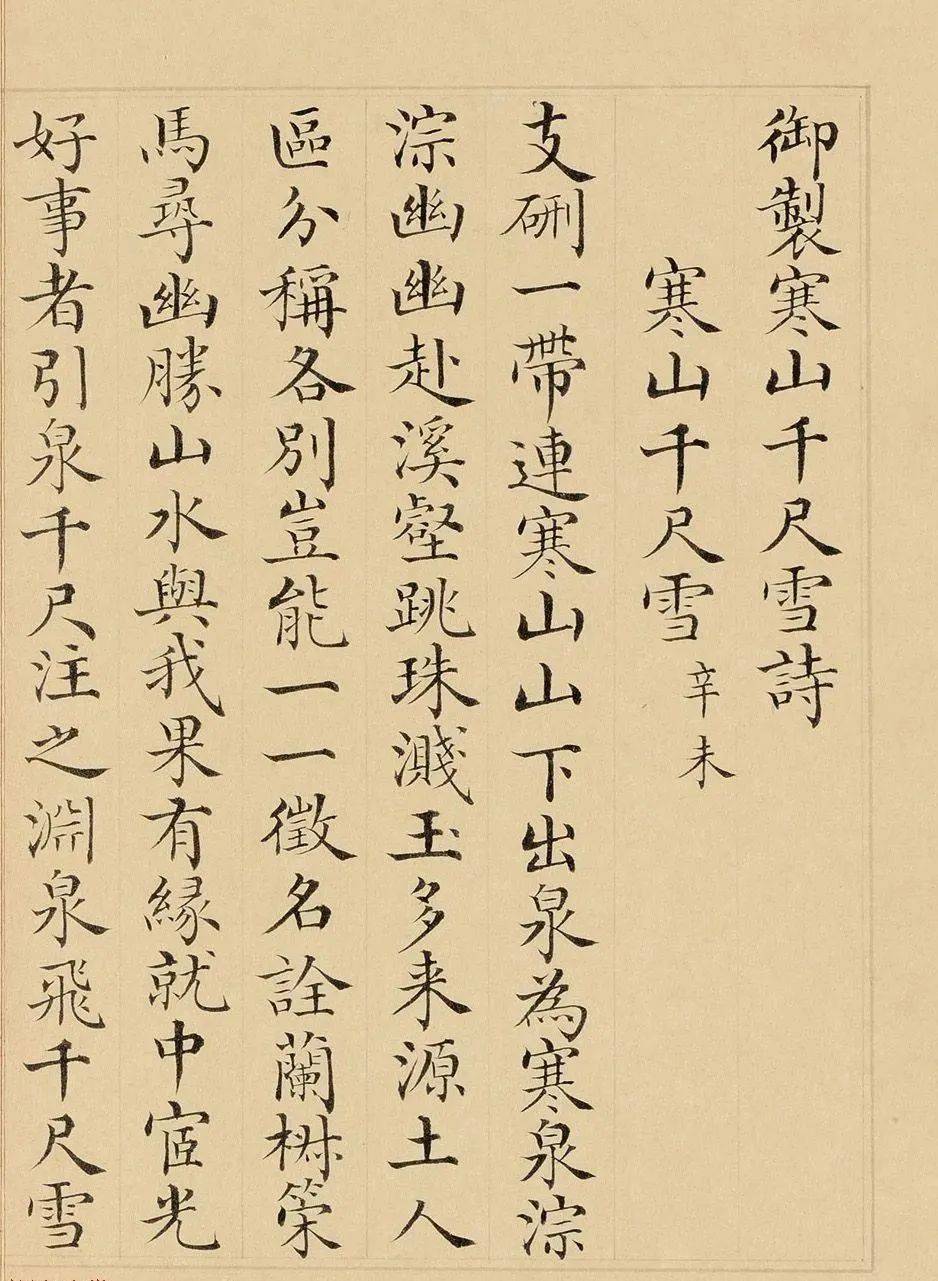 御製寒山千尺雪詩
寒山千尺雪辛未
支硎一帶連寒山山下出泉為寒泉淙
淙幽幽赴溪壑跳珠濺玉多来源土人
區分稱各別豈能一一徵名詮蘭椒策
馬尋幽勝山水與我果有緣就中宧光
好事者引泉千尺注之淵泉飛千尺雪